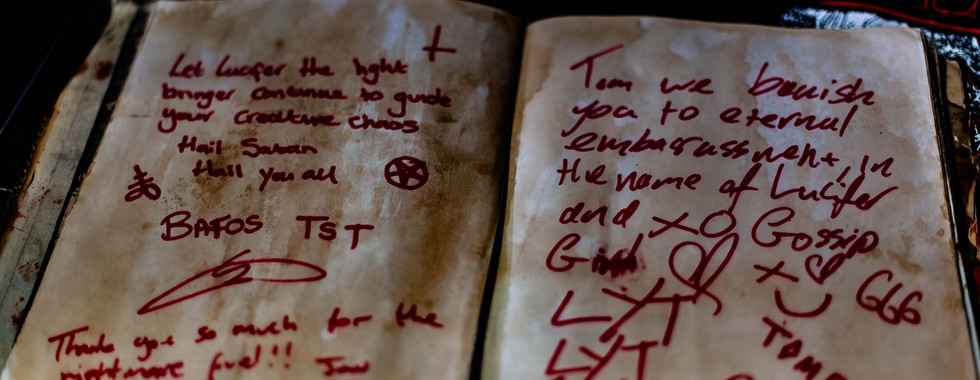 Let Lucifer the light
bringer continue to guide
your creative chaos
Hail Satan
Hail you all
BAFOS TST
Thank you so much for the
nightmare fuel!!
Tom we banish
you to eternal
embarassment, in
the name of Lucifer
and XO Gossip
Girl
X
666
LYT
LYT